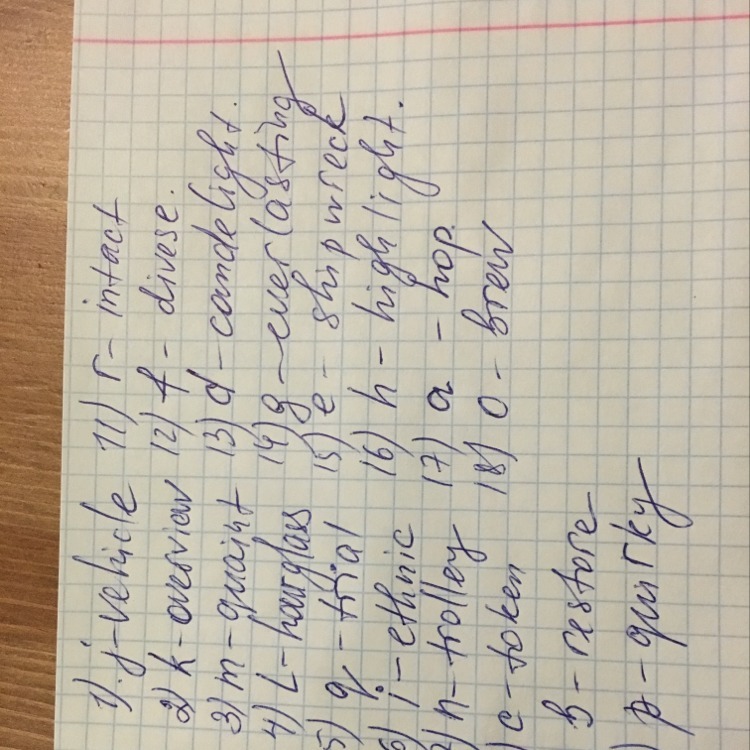 1) j - vehicle
2) k - overview
3) m - quaint
4) L - hourglass
5) q - trial
6) i - ethnic
7) n - trolley
) c - token
b - restore
) p - quirky
11) r - intact
12) f - divese.
13) d - candelight.
14) g - everlasting
15) e - shipwreck
16) h - highlight.
17) a - hop.
18) o - brew